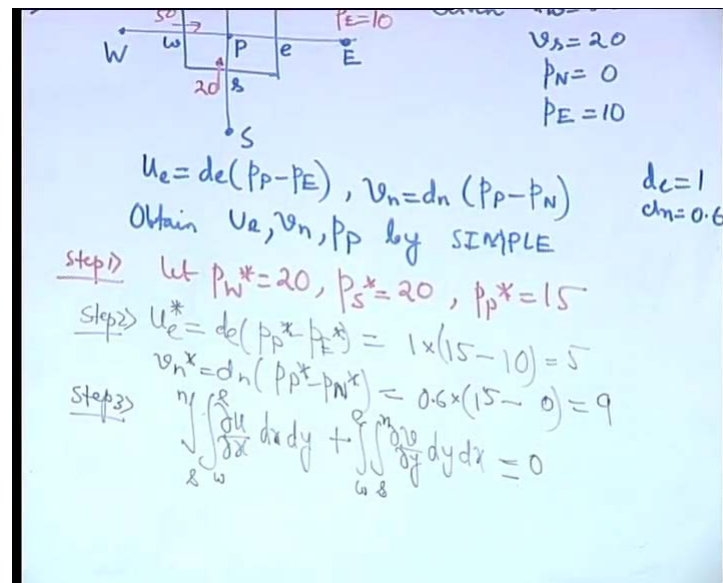 50 PE=10
W w P e E
vs=20
20 s
PN=0
PE=10
S
ue=de(PP-PE), vn=dn(PP-PN)
de=1
Obtain ue, vn, PP by SIMPLE
dn=0.6
Step1> let PW*=20, PS*=20, PP*=15
Step2> ue*=de(PP*-PE*)=1x(15-10)=5
vn*=dn(PP*-PN*)=0.6x(15-0)=9
Step3> ∫s^n∫w^e ∂u/∂x dxdy + ∫w^e∫s^n ∂v/∂y dydx = 0